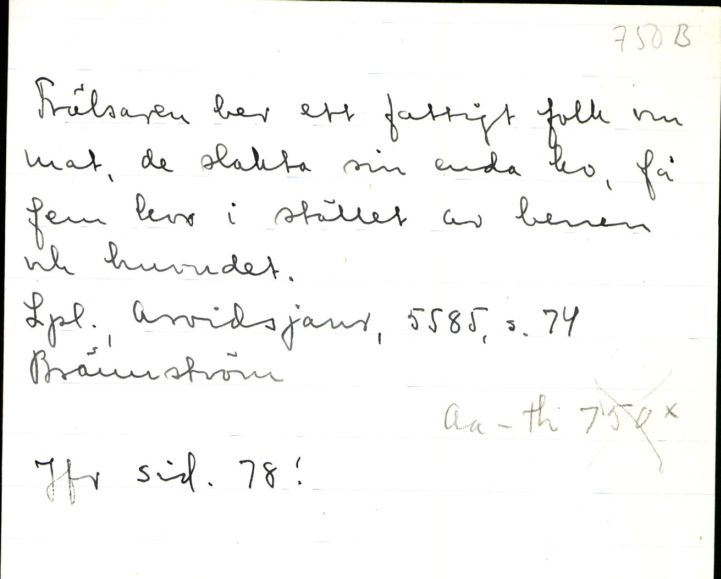 750 B
Frälsaren ber ett fattigt folk om
mat, de slakta sin enda ko, få
fem kor i stället av benen
och huvudet.
Lpl., Arvidsjaur, 5585, s. 74
Brännström
Aa-Th 750 x
Jfr sid. 78!